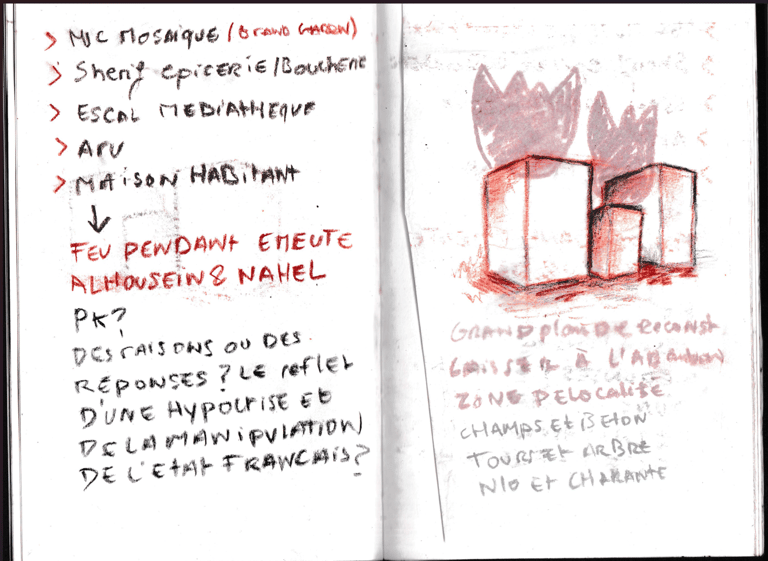 > MJC MOSAïQUE / (GRAND GARON)
> Sherif EPICERIE / BOUCHERIE
> ESCAL MEDIATHEQUE
> APU
> MAISON HABITANT
FEU PENDANT EMEUTE
ALHOUSEIN & NAHEL
PK?
DES RAISONS OU DES
RÉPONSES ? LE reflet
D'UNE HYPOCRISE ET
DE LA MANIPULATION
DE L'ETAT FRANCAIS ?
GRAND plan De Reconst
LAISSER À L'ABAndon
ZONE DELOCALISE
CHAMPS Et BETON
TOURS ET ARBRE
N10 ET CHARANTE